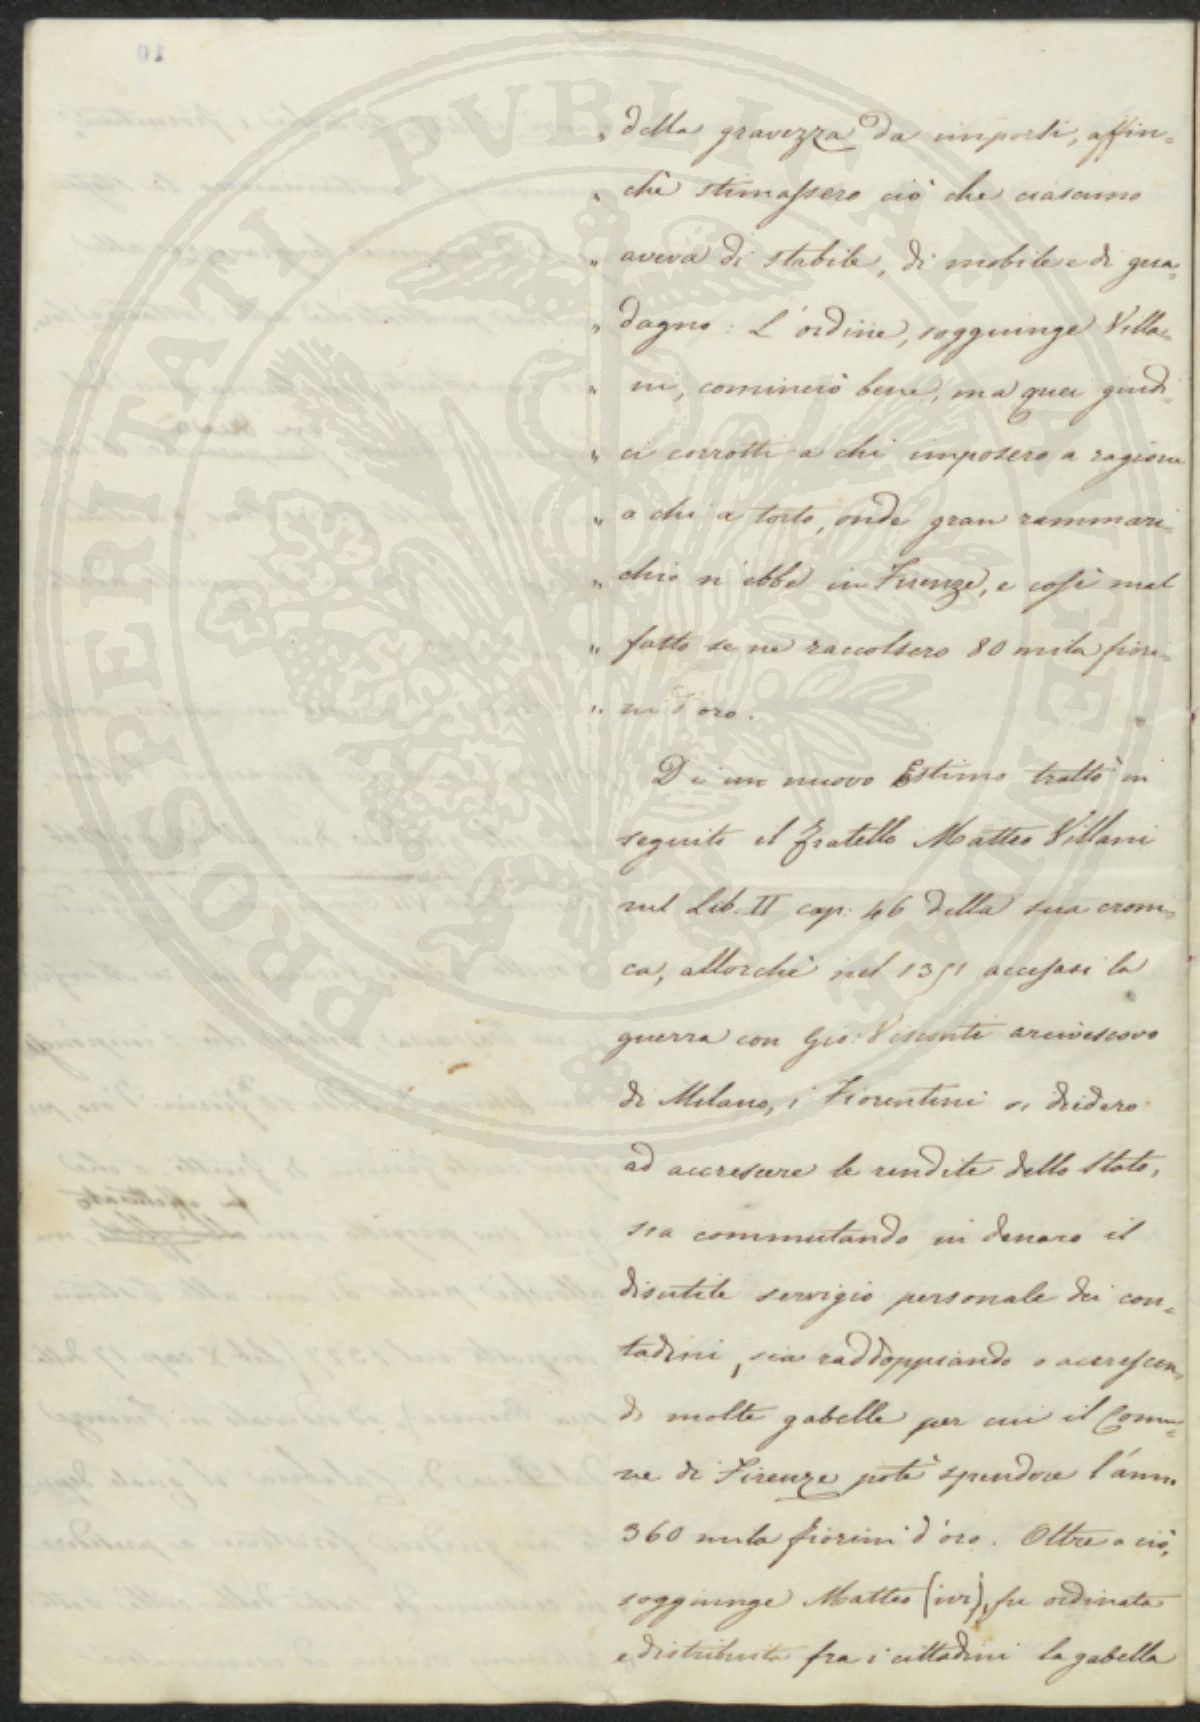 „ della gravezza da imporsi, affin=
„ chè stimassero ciò che ciascuno
„ aveva di stabile, di mobile e di gua=
„ dagno: L'ordine, soggiunge Villa=
„ ni, cominciò bene, ma quei giudi=
„ ci corrotti a chi imposero a ragione
„ a chi a torto, onde gran rammari=
„ chio n'ebbe in Firenze, e così mal
„ fatto se ne raccolsero 80 mila fiori=
„ ni d'oro.
Di un nuovo Estimo trattò in
seguito il fratello Matteo Villani
nel Lib. II cap: 46 della sua croni=
ca, allorchè nel 1351 accesasi la
guerra con Gio: Visconti arcivescovo
di Milano, i Fiorentini si diedero
ad accrescere le rendite dello Stato,
sia commutando in denaro il
disutile servigio personale dei con=
tadini, sia raddoppiando o accrescen=
do molte gabelle per cui il Comu=
ne di Firenze potè spendere l'anno
360 mila fiorini d'oro. Oltre a ciò,
soggiunge Matteo (ivi), fu ordinata
e distribuita fra i cittadini la gabella
PROSPERITATI PVBLICAE AVGENDAE
10